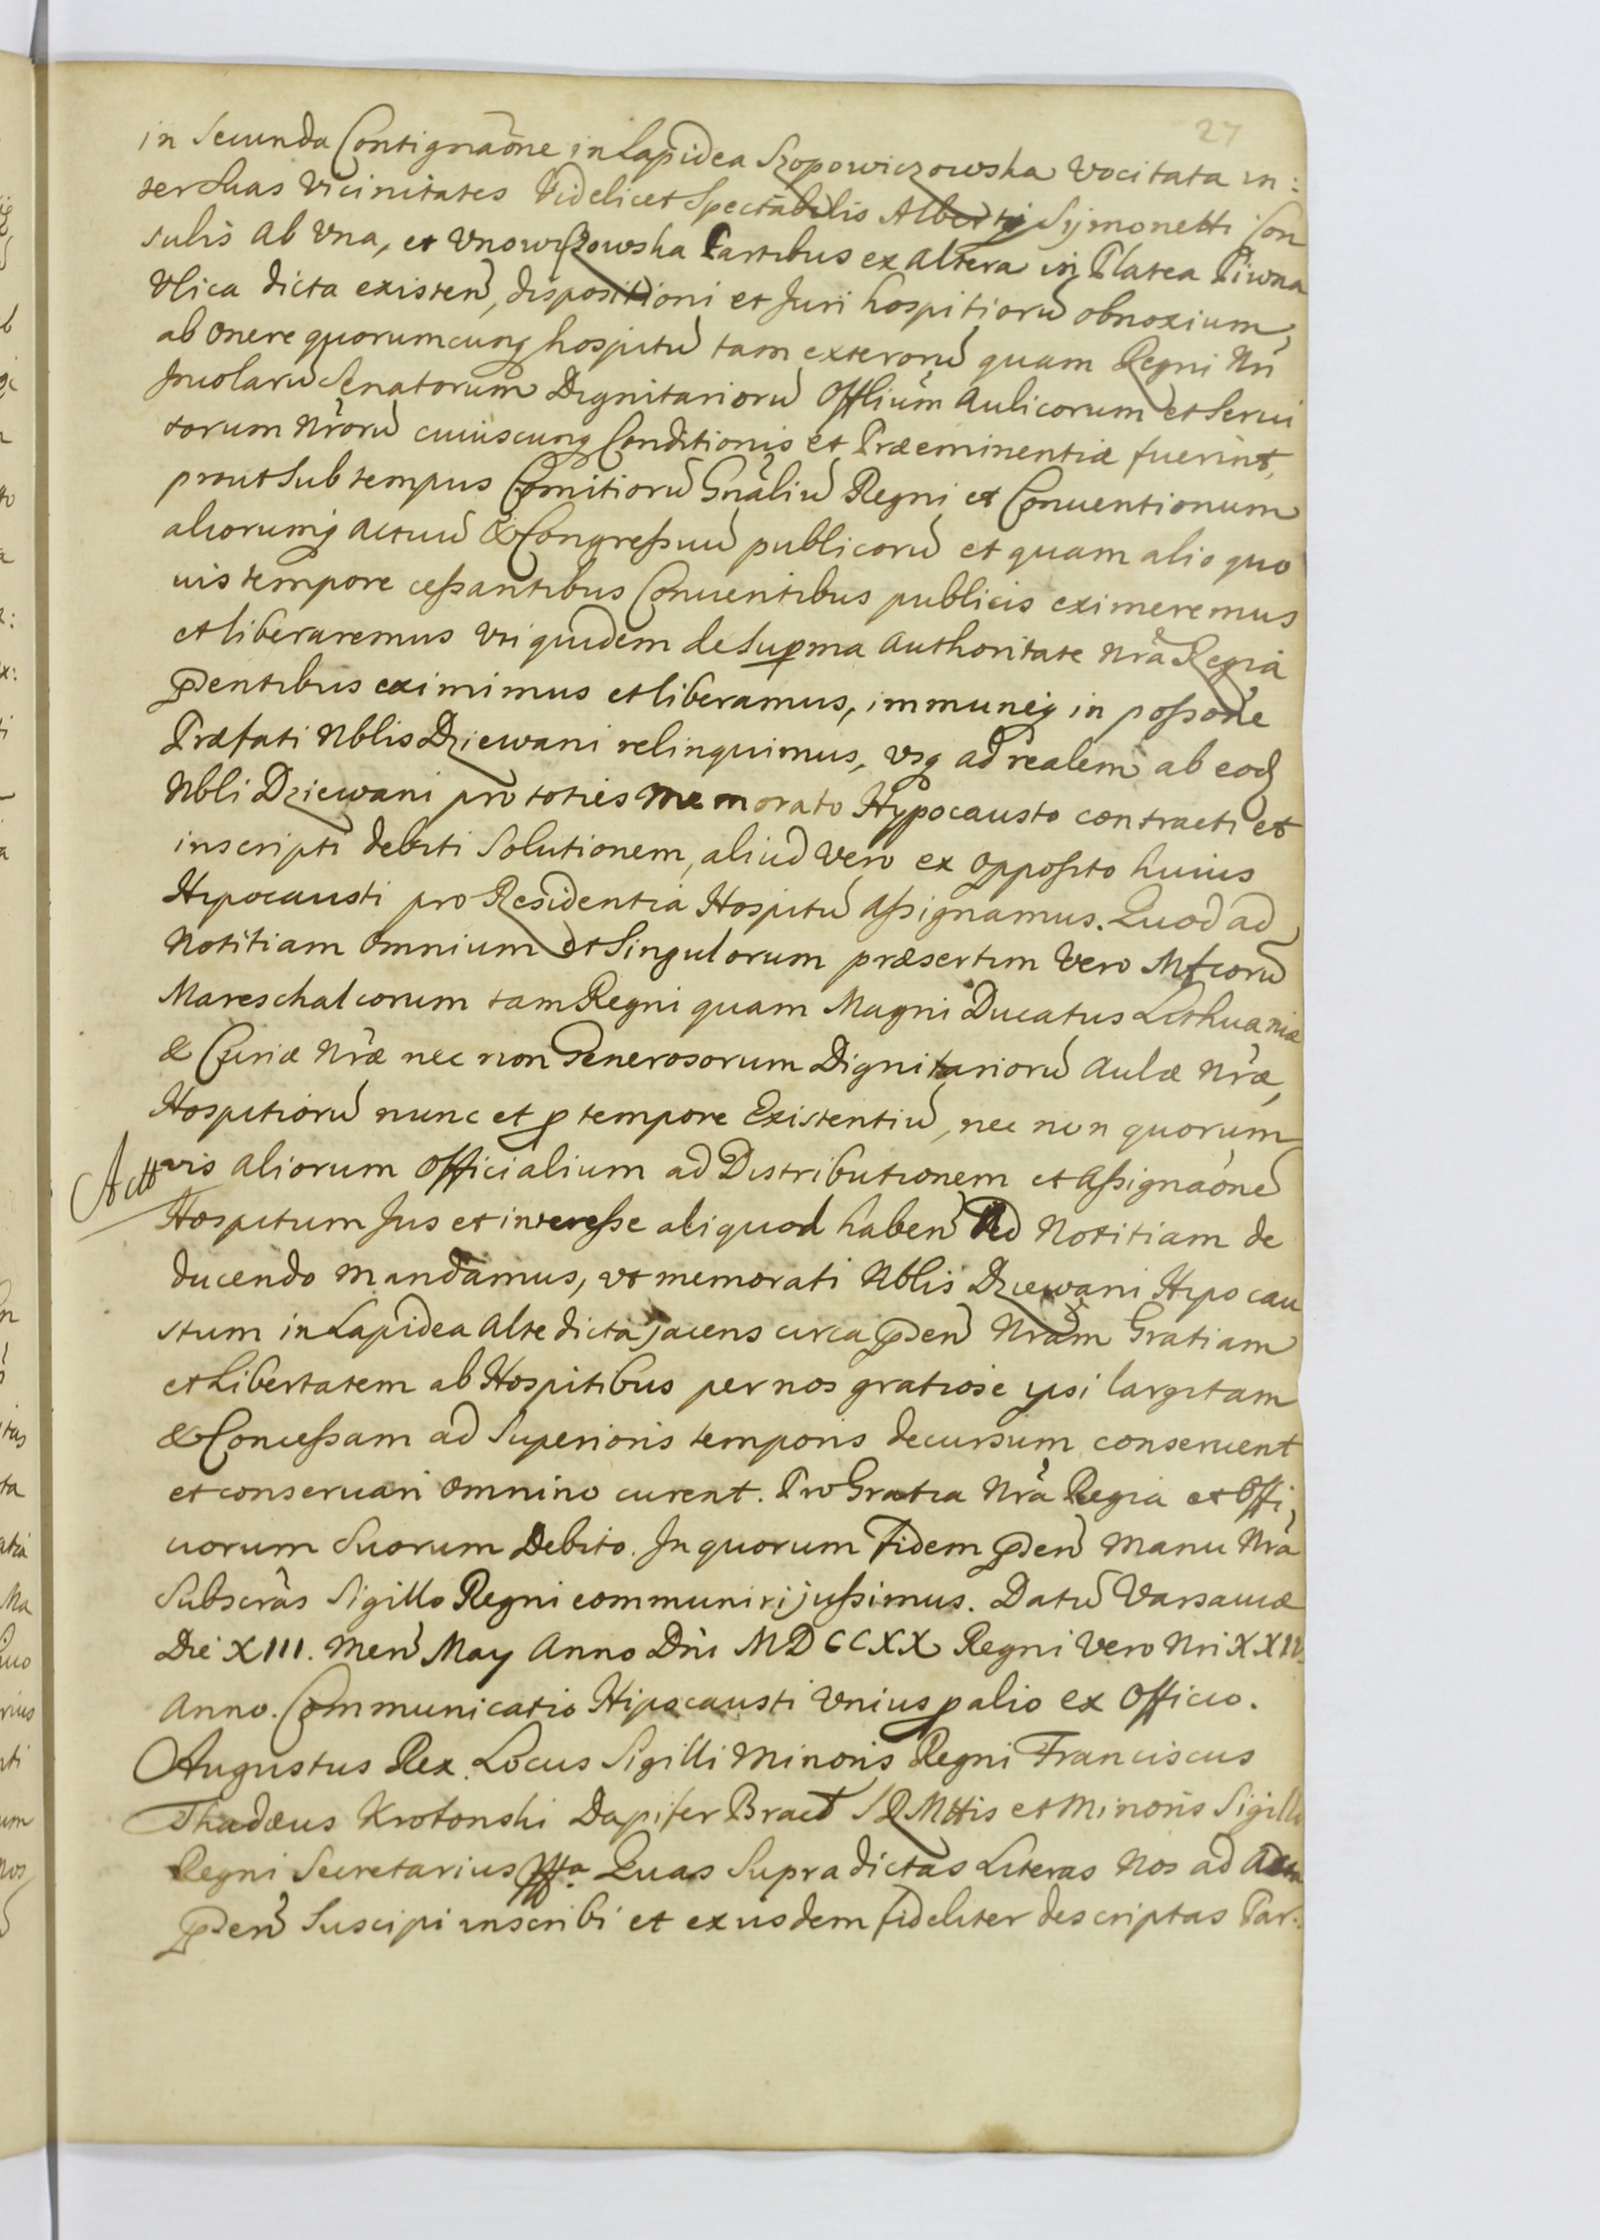 27
in Secunda Contignaõne in Lapidea Szopowiczowska Vocitata in:
ter Suas Vicinitates Videlicet Spectabilis Alberti Sijmonetti Con
sulis ab Vna, et Vnowiczowska Partibus ex altera in Platea Piwna
Vlica dicta existeñ, dispositioni et Juri hospitiorũ obnoxium,
ab onere quorumcunq hospitũ tam exterorũ quam Regni Nri
Incolarũ Senatorum Dignitariorũ Offlium Aulicorum et Serui
torum Nrorũ cuiuscunq Conditionis et Præeminentiæ fuerint,
prout Sub tempus Comitiorũ Gnaliũ Regni et Conuentionum
aliorumq actuũ & Congressuũ publicorũ et quam alio quo
uis tempore cessantibus Conuentibus publicis eximeremus
et liberaremus Vti quidem de Supma authoritate Nrã Regia
pñtentibus eximimus et liberamus, immuneq in possone
Præfati Nblis Dziewani relinquimus, vsq ad realem ab eod
Nbli Dziewani pro toties memorato Hypocausto contracti et
inscripti debiti Solutionem, aliud Vero ex opposito huius
Hipocausti pro Residentia Hospitũ assignamus. Quod ad
Notitiam omnium et Singulorum præsertim Vero Mfcorũ
Mareschalcorum tam Regni quam Magni Ducatus Lithuaniæ
& Curiæ Nræ nec non Generosorum Dignitariorũ Aulæ Nræ,
Hospitiorũ nunc et p tempore Existentiũ, nec non quorum
vis aliorum Officialium ad Distributionem et Assignaõnẽ
Hospitum Jus et interesse aliquod habeñ Ad Notitiam de
ducendo mandamus, vt memorati Nblis Dziewani Hipocau
stum in Lapidea alte dicta jacens circa pñtem Nram Gratiam
et Libertatem ab Hospitibus per nos gratiose ipsi largitam
& Concessam ad Superioris temporis decursum conseruent
et conseruari omnino curent. Pro Gratia Nrã Regia et Offi,
ciorum Suorum Debito. In quorum Fidem pñtem Manu Nrã
Subscrãs Sigillo Regni communiri jussimus. Datũ Varsauiæ
Die XIII. Meñ May Anno Dni MDCCXX Regni Vero Nri XXIV
Anno. Communicatio Hipocausti Vnius p alio ex Officio.
Augustus Rex. Locus Sigilli Minoris Regni Franciscus
Thadæus Kotonski Dapifer Bracl SRMttis et Minoris Sigilli
Regni Secretarius Quas Supradictas Literas Nos ad Acta
pñtem Suscipi inscribi et ex iisdem fideliter descriptas Par: